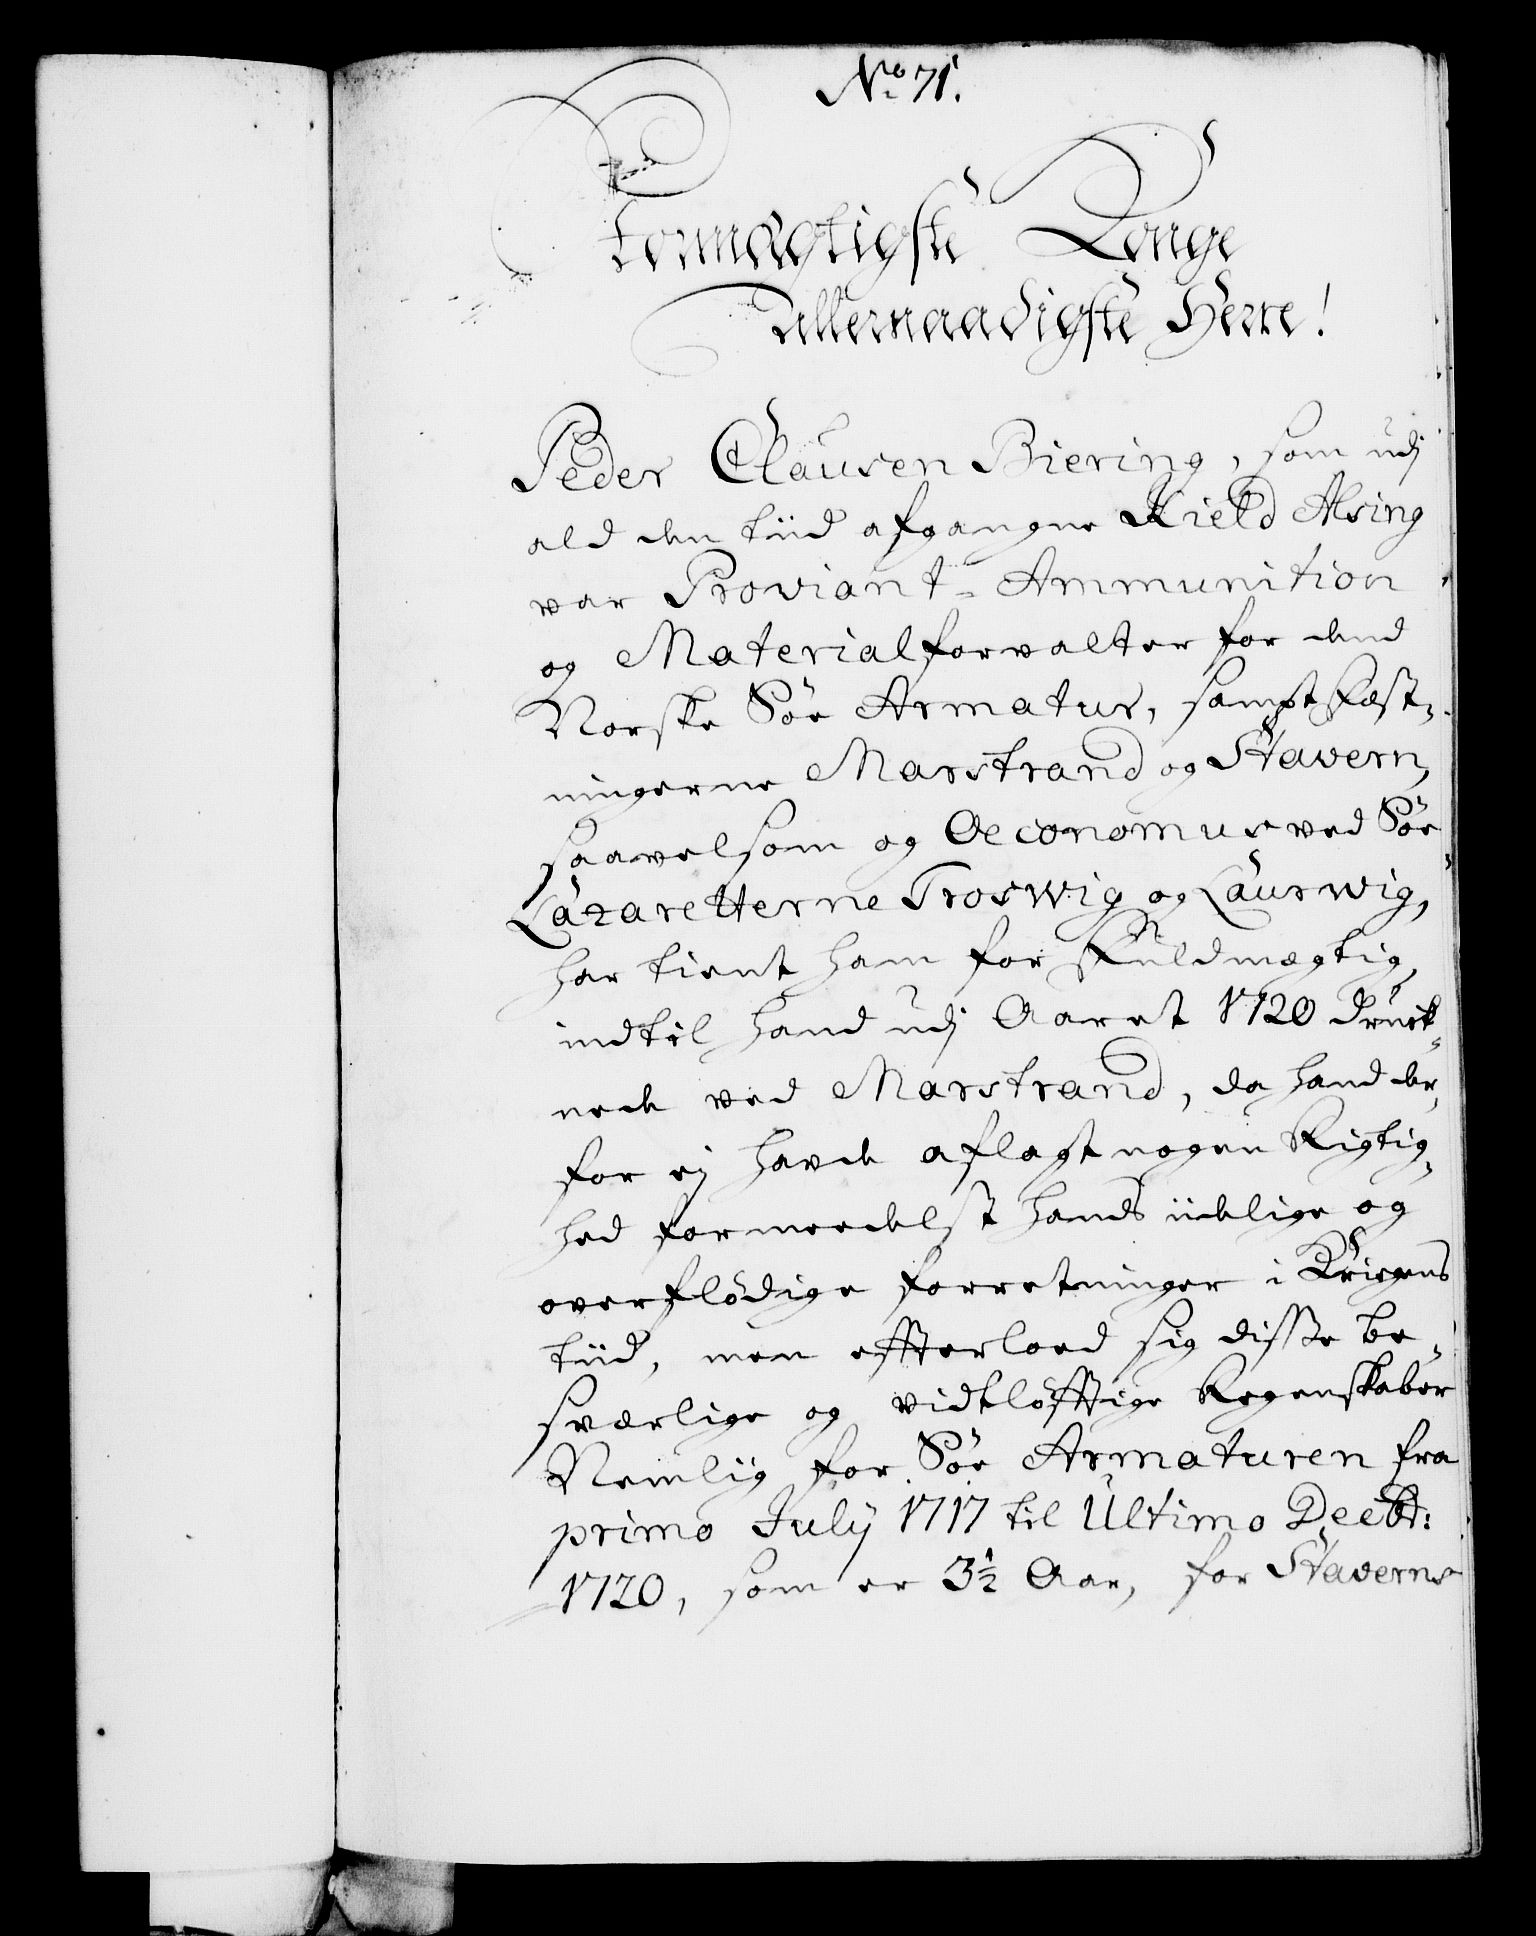 No 71.
Stormægtigste Konge
Allernaadigste Herre!
Peder Clausen Biering, som udj
ald den tiid afgangne Kield Alsing
var Proviant- Ammunition
og Materialforvalter for dend
Norske Söe Armatur, sampt Fæst-
ningerne Marstrand og Stavern,
saavelsom og Oeconomus ved Söe
Lazaretterne Troswig og Laurwig,
har tient ham for Fuldmægtig,
indtil hand udj Aaret 1720 druck-
nede ved Marstrand, da hand der-
for ej havde aflagt nogen Rigtig-
hed formedelst hands idelige og
overflödige forretninger i Krigens
tiid, men effterloed sig disse be-
sværlige og vidtlöfftige Regenskaber
Nemlig for Söe Armaturen fra
primo July 1717 til Ultimo Decbr:
1720, som er 3½ Aar, for Staverns